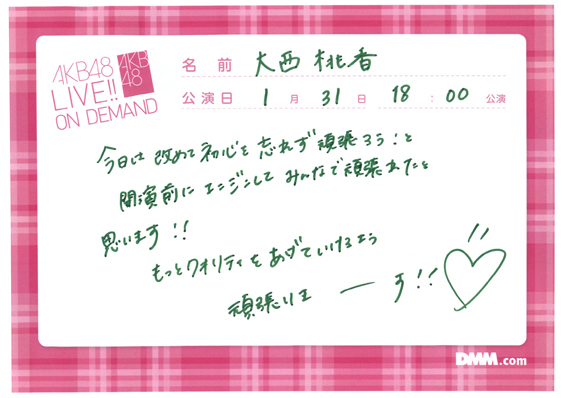 AKB48
LIVE!!
ON DEMAND
AKB
48
名前 大西桃香
公演日 1月31日 18:00公演
今日は改めて初心を忘れず頑張ろう!と
開演前にエンジンして みんなで頑張れたと
思います!!
もっとクオリティをあげていけるよう
頑張りまーす!!
DMM.com